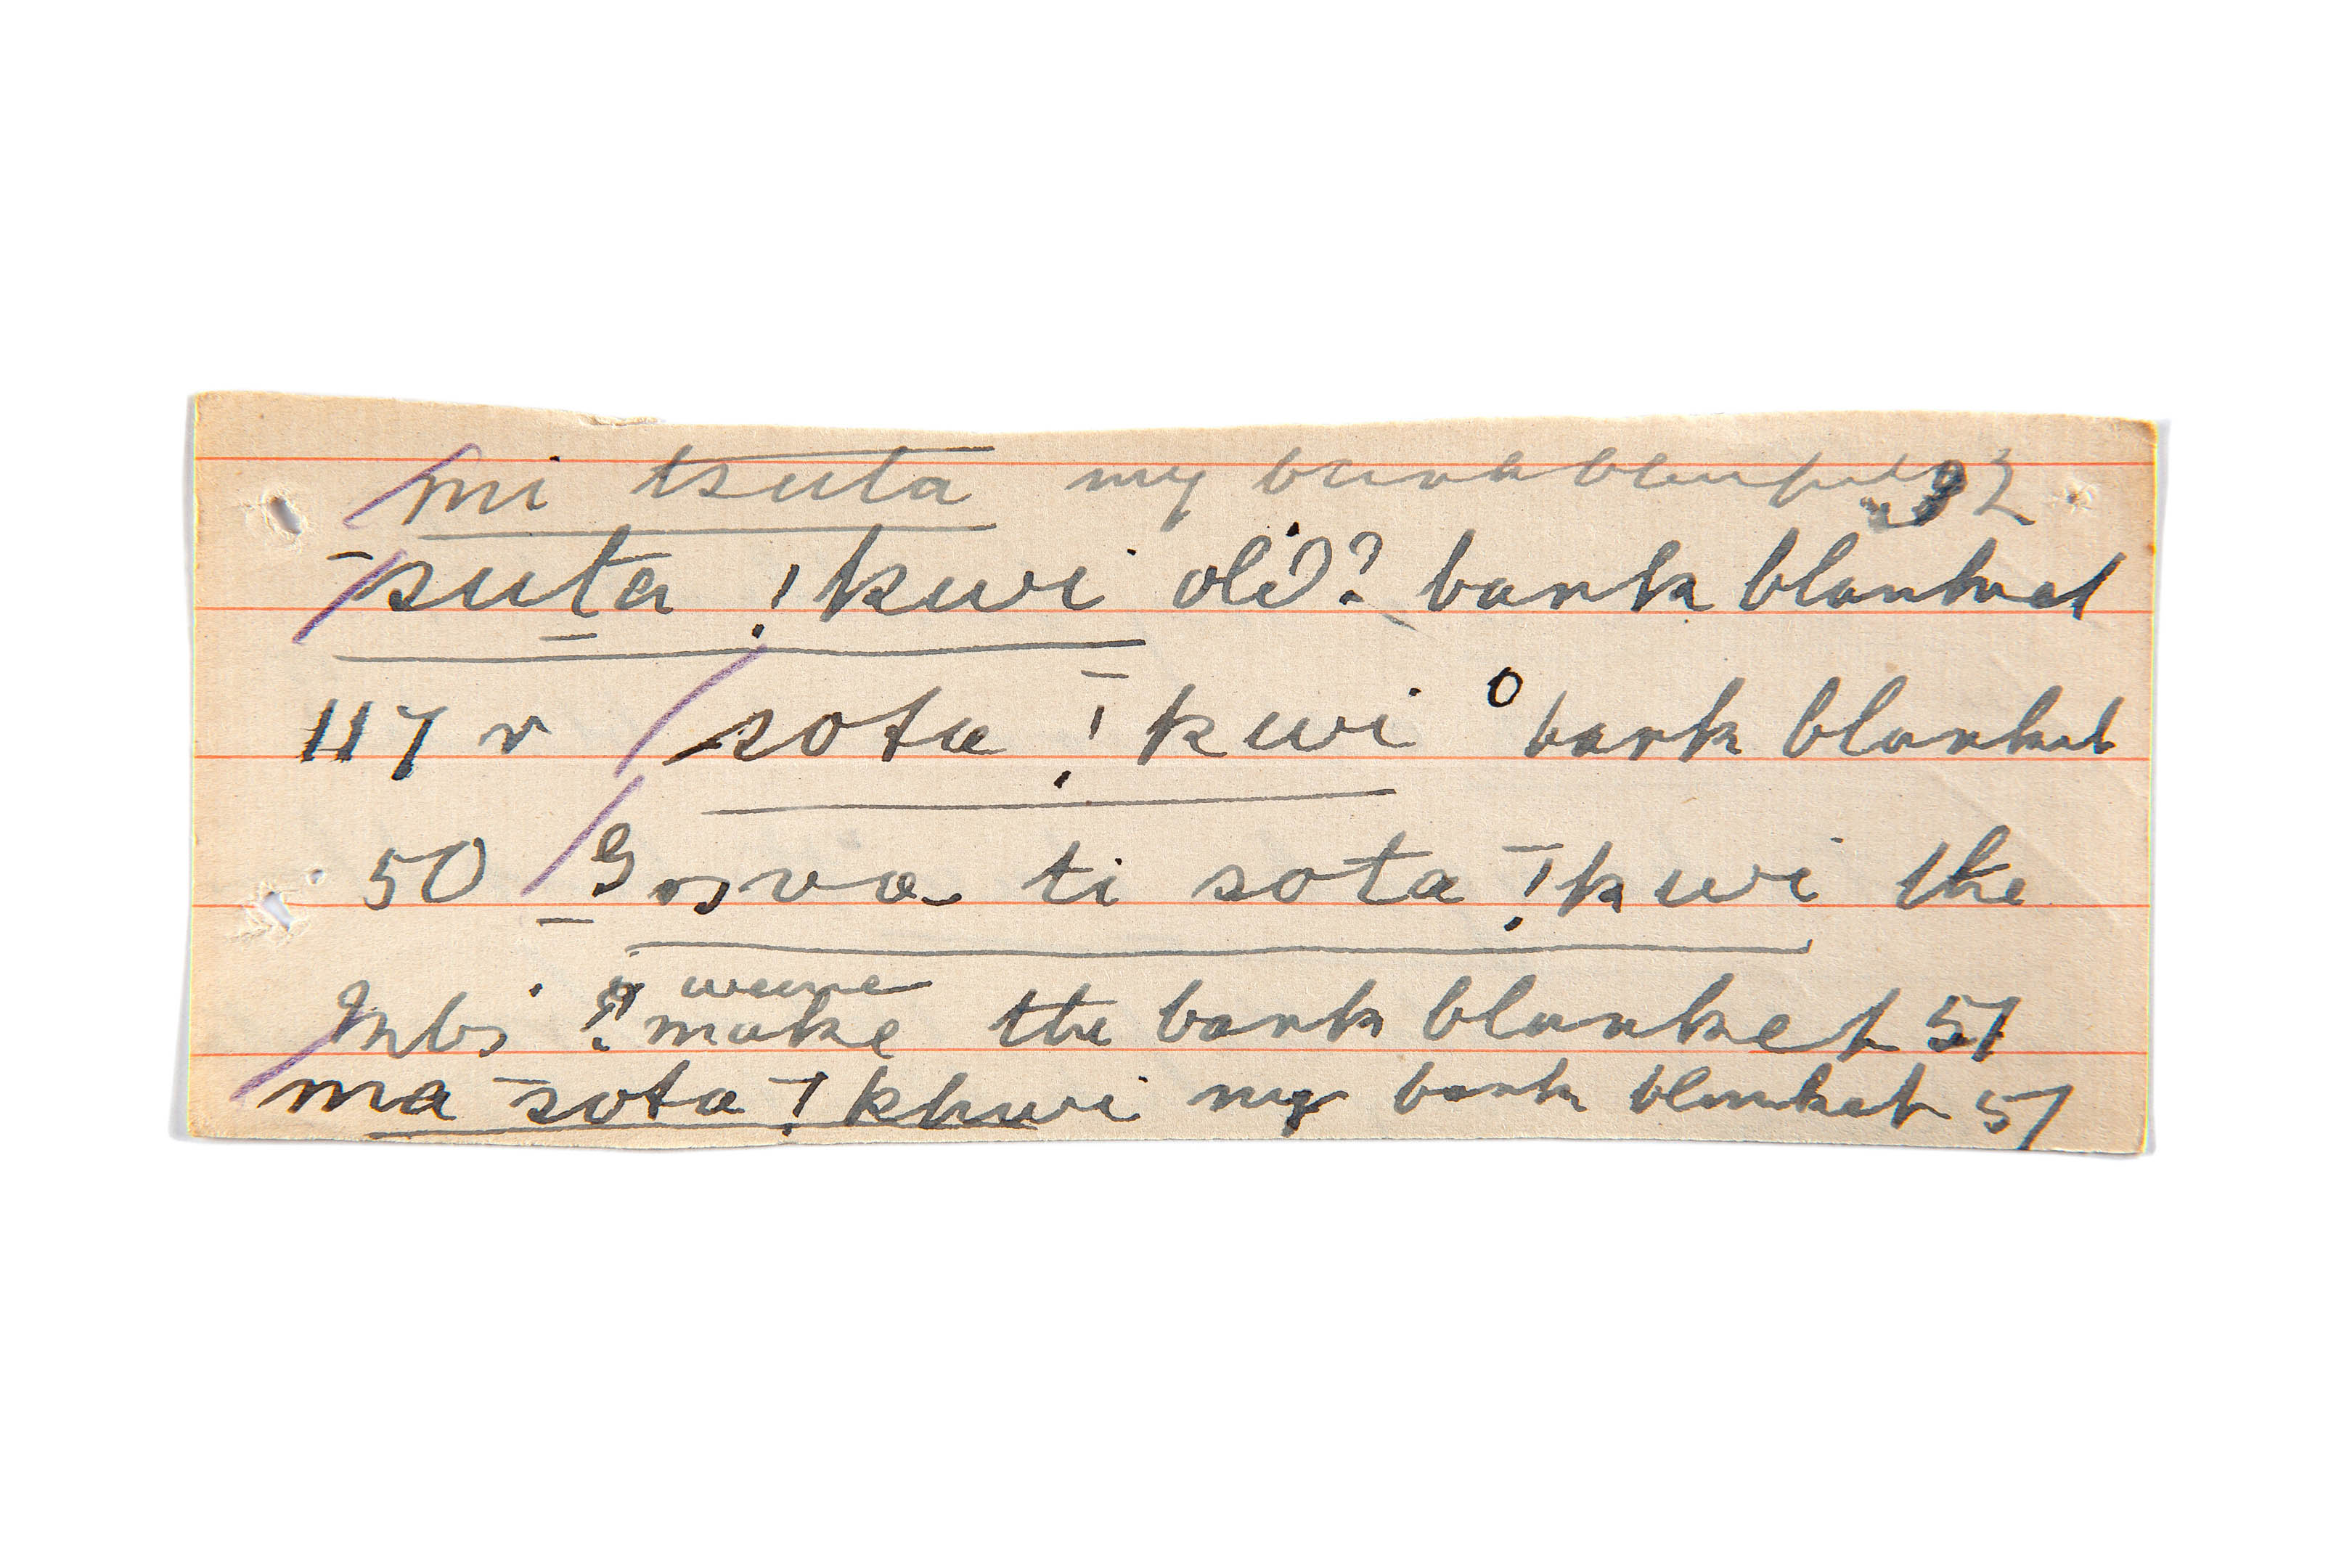 mi tsuta my bark blanket 92
suta ! kwi old? bark blanket
117 r sota ! kwi bark blanket
50 ti sota ! kwi the
Mbi make the bark blanket 51
ma sota ! khwi my bark blanket 51